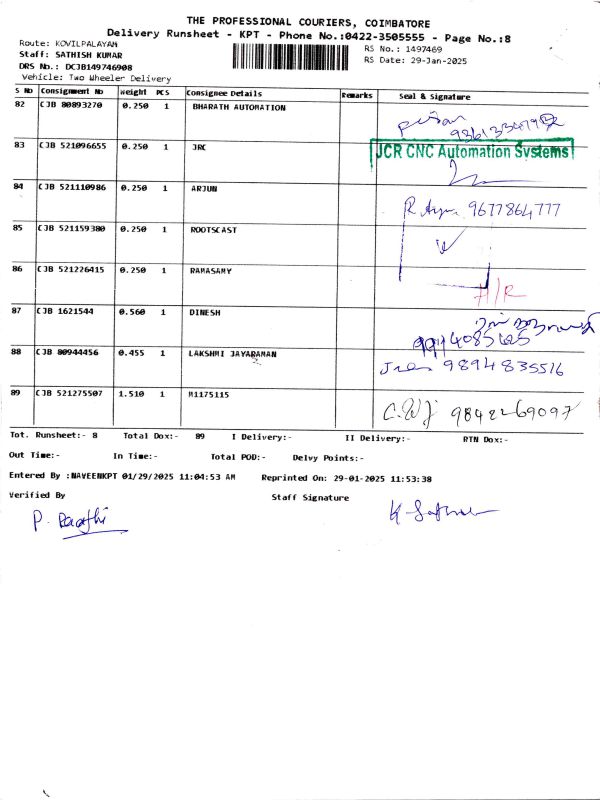 THE PROFESSIONAL COURIERS, COIMBATORE
Delivery Runsheet - KPT - Phone No.:0422-3505555 - Page No.:8
Route: KOVILPALAYAM
Staff: SATHISH KUMAR
DRS No.: DCJB149746908
Vehicle: Two Wheeler Delivery
RS No.: 1497469
RS Date: 29-Jan-2025
S No Consignment No Weight PCS Consignee Details Remarks Seal & Signature
82 CJB 80893270 0.250 1 BHARATH AUTOMATION
83 CJB 521096655 0.250 1 JRC JCR CNC Automation Systems
84 CJB 521110986 0.250 1 ARJUN 9677864777
85 CJB 521159380 0.250 1 ROOTSCAST
86 CJB 521226415 0.250 1 RAMASAMY
87 CJB 1621544 0.560 1 DINESH
88 CJB 80944456 0.455 1 LAKSHMI JAYARAMAN 9894835516
89 CJB 521275507 1.510 1 M1175115 9842269097
Tot. Runsheet:- 8 Total Dox:- 89 I Delivery:- II Delivery:- RTN Dox:-
Out Time:- In Time:- Total POD:- Delvy Points:-
Entered By :NAVEENKPT 01/29/2025 11:04:53 AM Reprinted On: 29-01-2025 11:53:38
Verified By Staff Signature